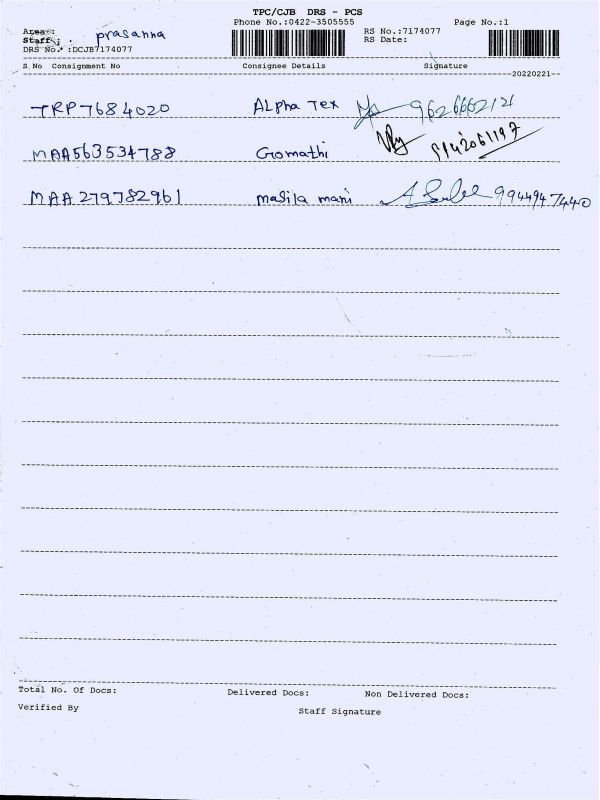 TPC/CJB DRS - PCS
Phone No.:0422-3505555 Page No.:1
Area : RS No.:7174077
Staff : prasanna RS Date:
DRS No. :DCJB7174077
S No Consignment No Consignee Details Signature
20220221
TRP7684020 Alpha Tex
MAA563534788 Gomathi
MAA279782961 Masila mani 9944947440
Total No. Of Docs: Delivered Docs: Non Delivered Docs:
Verified By Staff Signature